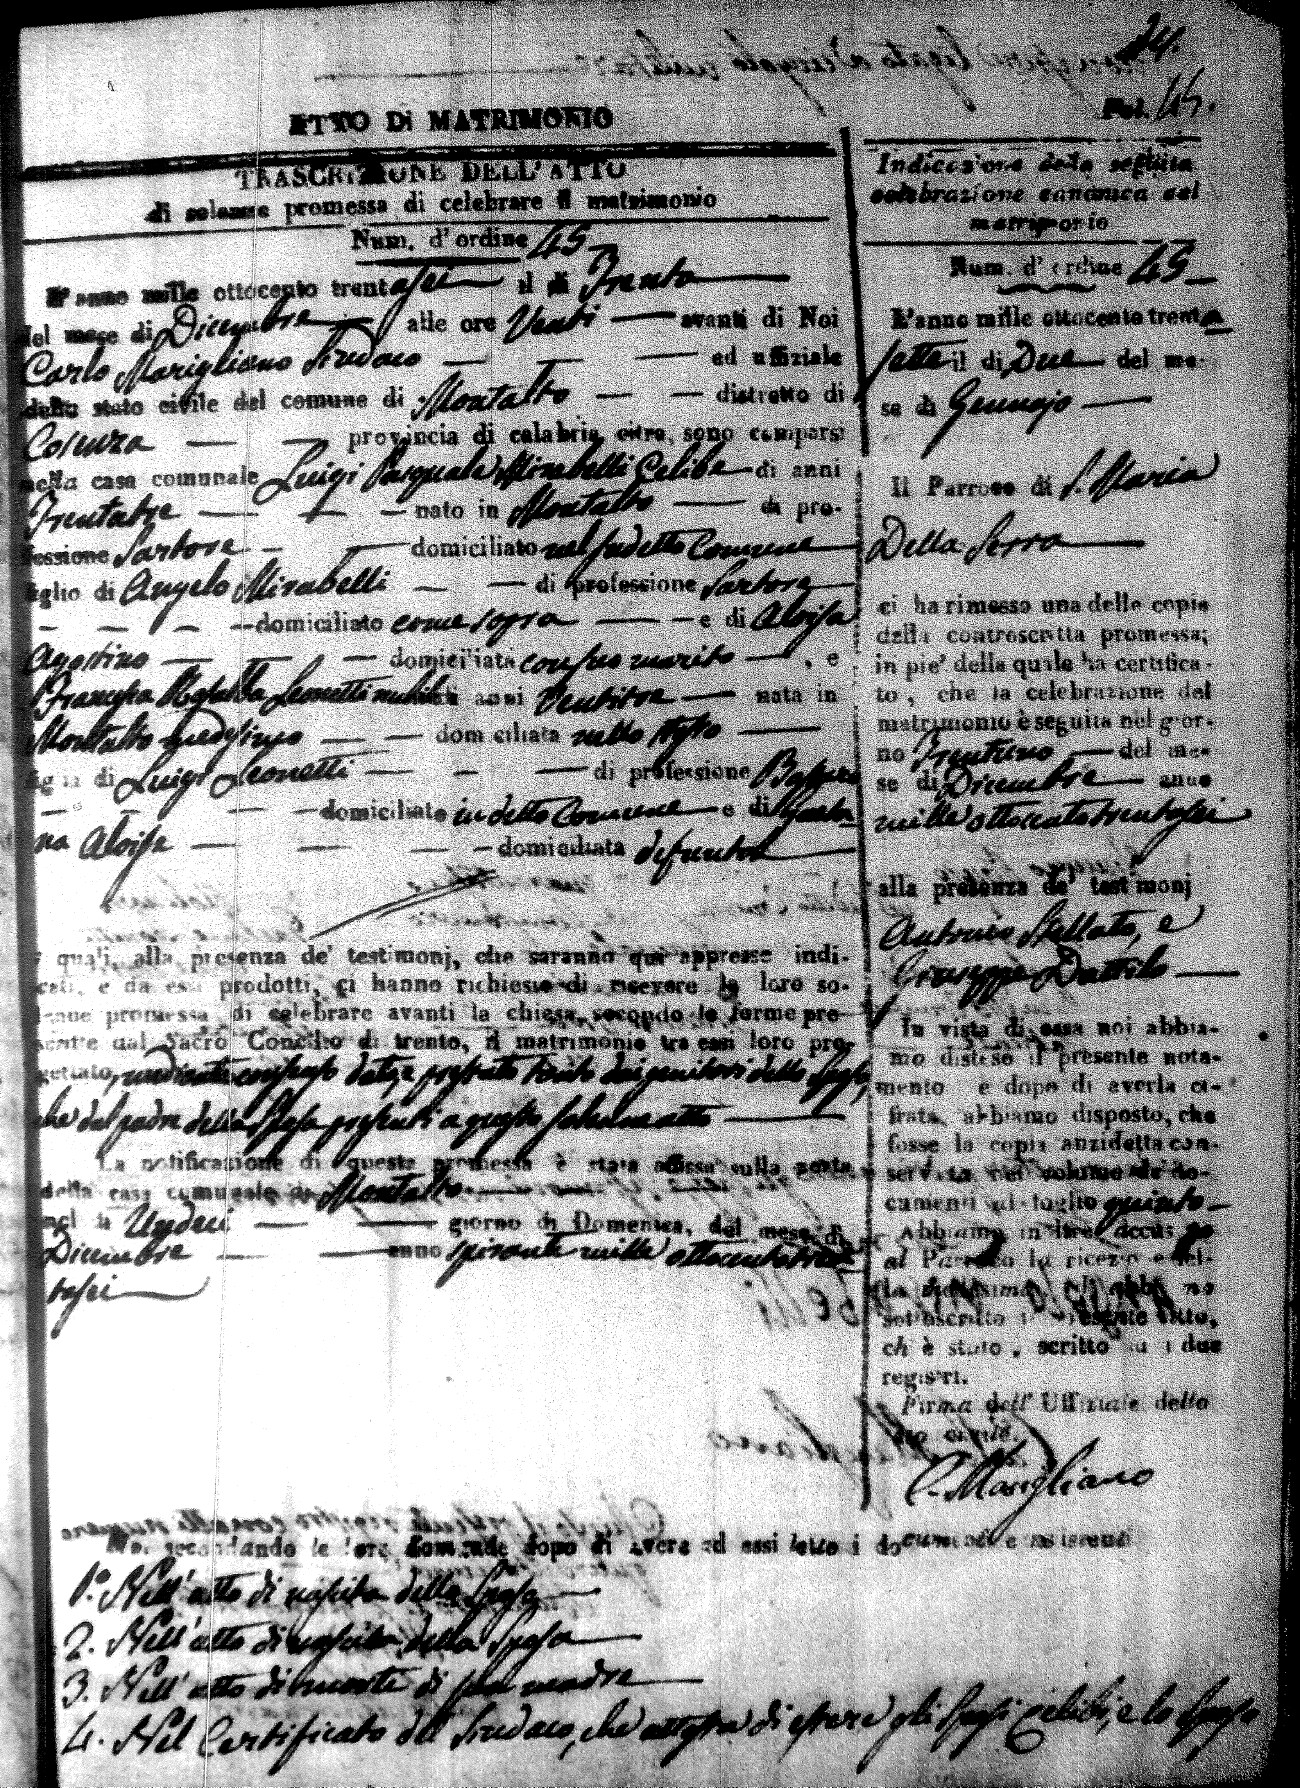 Fol. 45.
ATTO Di MATRIMONIO
TRASCRIZIONE DELL'ATTO
di solenne promessa di celebrare il matrimonio
Num. d'ordine 45
L'anno mille ottocento trentasei il dì Trenta
del mese di Dicembre alle ore Venti avanti di Noi
Carlo Marigliano Sindaco ed uffiziale
dello stato civile del comune di Montalto distretto di
Cosenza provincia di calabria citra, sono comparsi
nella casa comunale Luigi Pasquale Mirabelli Celibe di anni
Trentatre nato in Montalto di pro-
fessione Sartore domiciliato nel sudetto Comune
figlio di Angelo Mirabelli di professione Sartore
domiciliato come sopra e di Aloisa
Agostino domiciliata con suo marito , e
Francesca Leonetti nubile di anni Ventitre nata in
Montalto medesimo domiciliata nello stesso
figlia di Luigi Leonetti di professione
domiciliato in detto Comune e di
na Aloise domiciliata defunta
i quali, alla presenza de' testimonj, che saranno qui appresso indi-
cati, e da essi prodotti, ci hanno richiesto di ricevere la loro so-
lenne promessa di celebrare avanti la chiesa, secondo le forme pre-
scritte dal Sacro Concilio di trento, il matrimonio tra essi loro pro-
gettato, mediante consenso datoe prestato tanto dai genitori dello Sposo,
che dal padre della Sposa presenti a questo solenne atto
La notificazione di questa promessa è stata affissa sulla porta
della casa comunale di Montalto
nel dì Undeci giorno di Domenica, del mese di
Dicembre anno spirante mille ottocentotren
tasei
Noi secondando le loro domande dopo di avere ad essi letto i documenti consistenti
1.° Nell'atto di nascita dello Sposo
2. Nell'atto di nascita della Sposa
3. Nell'atto di morte di sua madre
4. Nel Certificato del Sindaco, che attesta di essere gli Sposi Celibi, e lo Sposo
Indicazione della seguita
celebrazione canonica del
matrimonio
Num. d'ordine 45
L'anno mille ottocento trenta
sette il dì Due del me-
se di Gennajo
Il Parroco di S. Maria
Della Serra
ci ha rimesso una delle copie
della controscritta promessa;
in piè della quale ha certifica-
to, che la celebrazione del
matrimonio è seguita nel gior-
no Trentuno del me-
se di Dicembre anno
mille ottocento trentasei
alla presenza de' testimonj
Antonio Stellato, e
Giuseppe Dattilo
In vista di essa noi abbia-
mo disteso il presente nota-
mento e dopo di averla ci-
frata, abbiamo disposto, che
fosse la copia anzidetta con-
servata nel volume de' do-
cumenti al foglio quinto
Abbiamo inoltre accusato
al Parroco la ricezione del-
la medesima, ed abbiamo
sottoscritto il presente atto,
ch'è stato, scritto su i due
registri.
Firma dell'Uffiziale dello
stato civile.
C. Marigliano